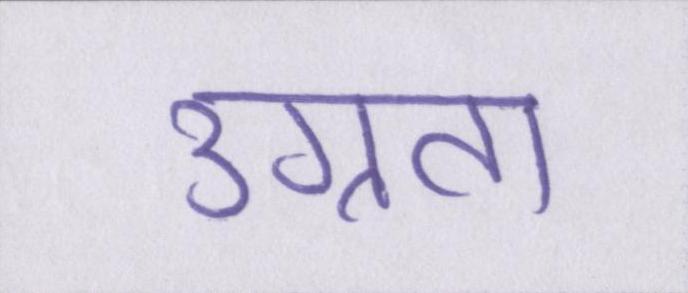 उग्रता